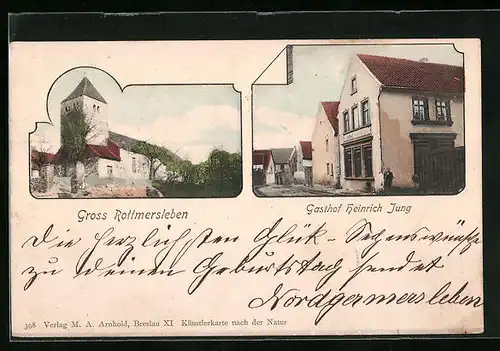 Gross Rottmersleben
Gasthof Heinrich Jung
Die herzlichsten Glück- Segenswünsche
zu deinen Geburtstag sendet
Nordgermersleben
398 Verlag M. A. Arnhold, Breslau XI Künstlerkarte nach der Natur